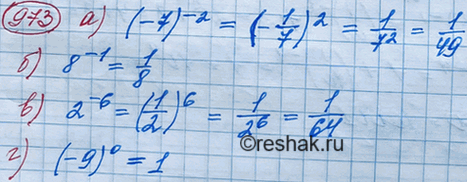 973 а) (-7)⁻² = (-1/7)² = 1/7² = 1/49
б) 8⁻¹ = 1/8
в) 2⁻⁶ = (1/2)⁶ = 1/2⁶ = 1/64
г) (-9)⁰ = 1
©reshak.ru